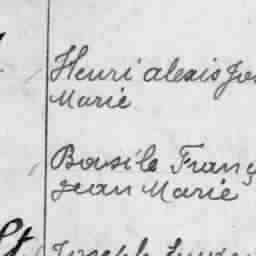 Henri alexis Jos
Marie
Basile Franç
Jean Marie
Joseph